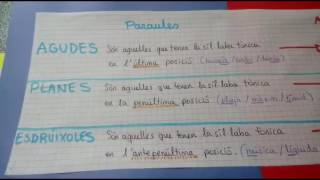 Paraules
AGUDES Són aquelles que tenen la síl·laba tònica
en l'última posició
PLANES Són aquelles que tenen la síl·laba tònica
en la penúltima posició (platja /
ESDRÚIXOLES Són aquelles que tenen la síl·laba tònica
en l'antepenúltima posició. (música /